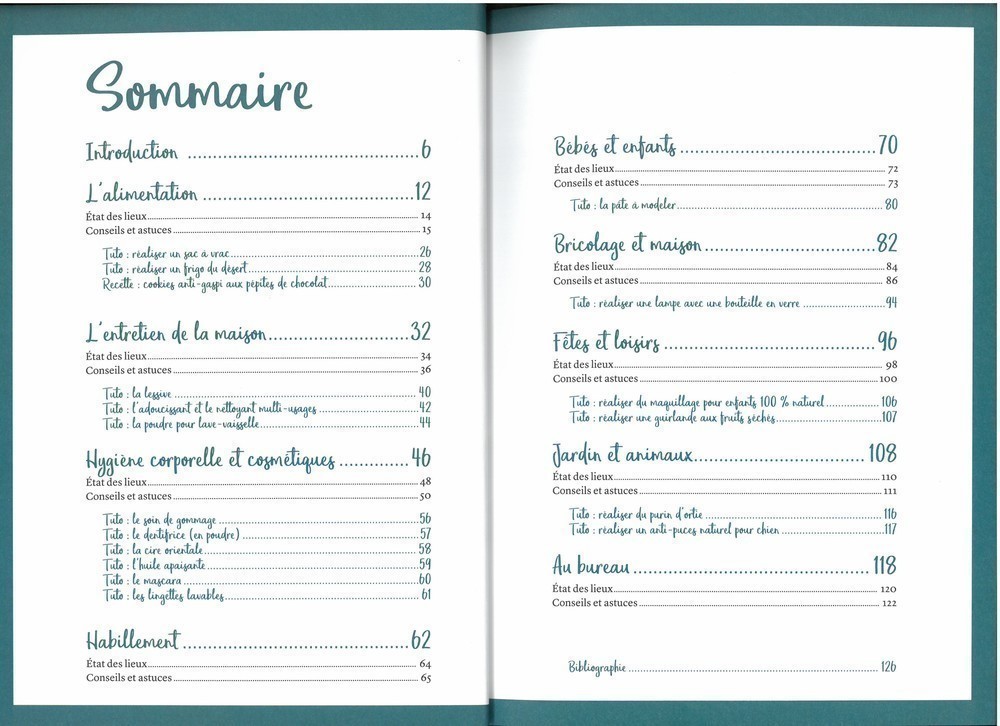 Sommaire
Introduction ........ 6
L'alimentation ........ 12
État des lieux ........ 14
Conseils et astuces ........ 15
Tuto : réaliser un sac à vrac ........ 26
Tuto : réaliser un frigo du désert ........ 28
Recette : cookies anti-gaspi aux pépites de chocolat ........ 30
L'entretien de la maison ........ 32
État des lieux ........ 34
Conseils et astuces ........ 36
Tuto : la lessive ........ 40
Tuto : l'adoucissant et le nettoyant multi-usages ........ 42
Tuto : la poudre pour lave-vaisselle ........ 44
Hygiène corporelle et cosmétiques ........ 46
État des lieux ........ 48
Conseils et astuces ........ 50
Tuto : le soin de gommage ........ 56
Tuto : le dentifrice (en poudre) ........ 57
Tuto : la cire orientale ........ 58
Tuto : l'huile apaisante ........ 59
Tuto : le mascara ........ 60
Tuto : les lingettes lavables ........ 61
Habillement ........ 62
État des lieux ........ 64
Conseils et astuces ........ 65
Bébés et enfants ........ 70
État des lieux ........ 72
Conseils et astuces ........ 73
Tuto : la pâte à modeler ........ 80
Bricolage et maison ........ 82
État des lieux ........ 84
Conseils et astuces ........ 86
Tuto : réaliser une lampe avec une bouteille en verre ........ 94
Fêtes et loisirs ........ 96
État des lieux ........ 98
Conseils et astuces ........ 100
Tuto : réaliser du maquillage pour enfants 100 % naturel ........ 106
Tuto : réaliser une guirlande aux fruits séchés ........ 107
Jardin et animaux ........ 108
État des lieux ........ 110
Conseils et astuces ........ 111
Tuto : réaliser du purin d'ortie ........ 116
Tuto : réaliser un anti-puces naturel pour chien ........ 117
Au bureau ........ 118
État des lieux ........ 120
Conseils et astuces ........ 122
Bibliographie ........ 126